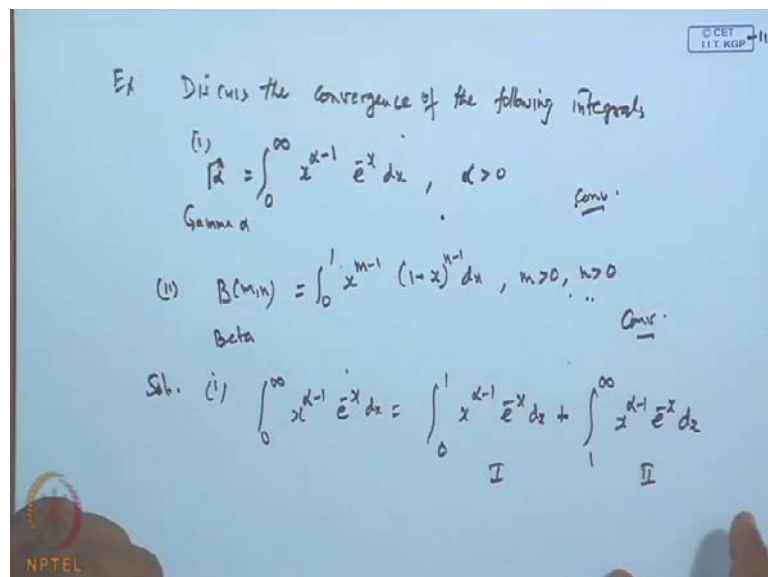 © CET
I.I.T. KGP
-11
Ex Discuss the convergence of the following integrals
(i)
Γα = ∫₀^∞ x^{α-1} e^{-x} dx , α > 0
Conv.
Gamma α
(ii) B(m,n) = ∫₀^1 x^{m-1} (1-x)^{n-1} dx , m>0, n>0
Beta
Conv.
Sol. (i) ∫₀^∞ x^{α-1} e^{-x} dx = ∫₀^1 x^{α-1} e^{-x} dx + ∫₁^∞ x^{α-1} e^{-x} dx
I II
NPTEL